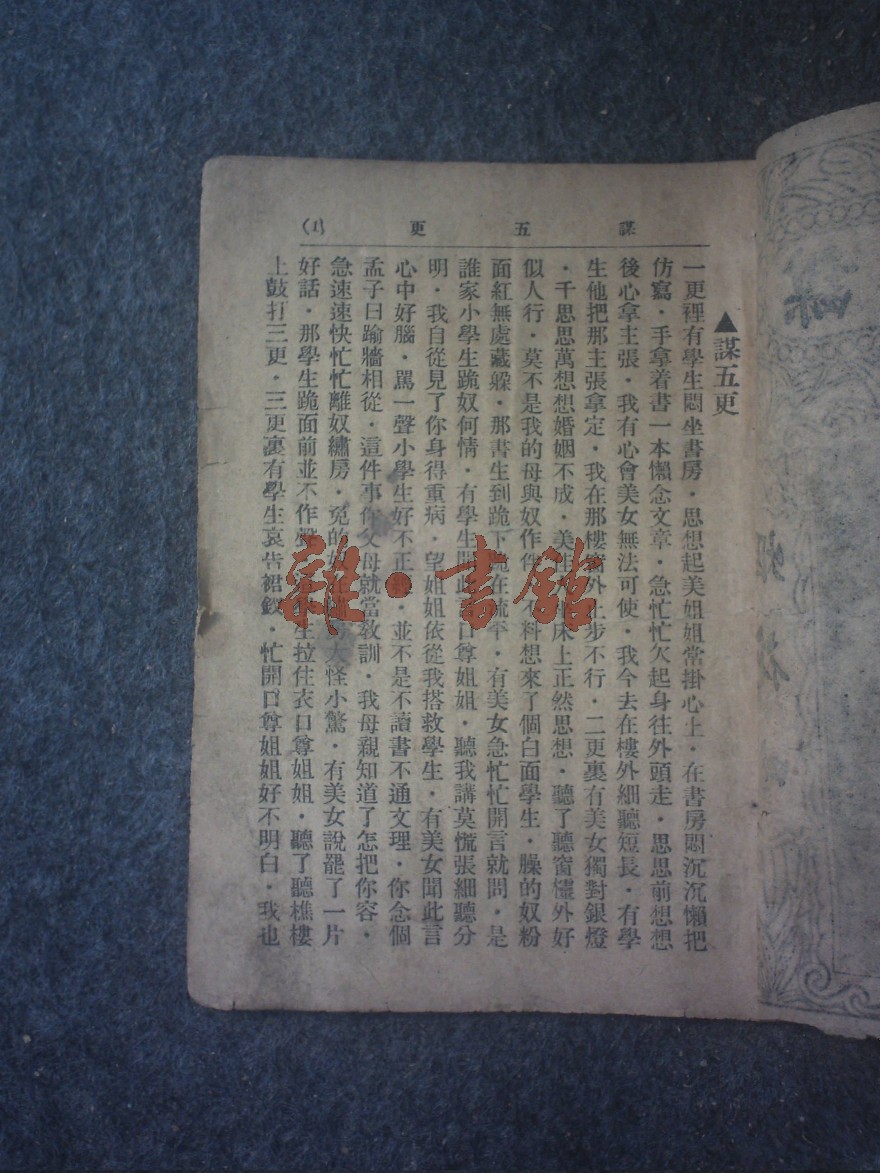 謀五更 (1)
▲謀五更
一更裡有學生悶坐書房．思想起美姐姐常掛心上．在書房悶沉沉懶把
仿寫．手拿着書一本懶念文章．急忙忙欠起身往外頭走．思思前想想
後心拿主張．我有心會美女無法可使．我今去在樓外細聽短長．有學
生他把那主張拿定．我在那樓窗外止步不行．二更裏有美女獨對銀燈
．千思思萬想想婚姻不成．美床上正然思想．聽了聽窗櫺外好
似人行．莫不是我的母與奴作伴．不料想來了個白面學生．臊的奴粉
面紅無處藏躲．那書生到跪下在流平．有美女急忙忙開言就問．是
誰家小學生跪奴何情．有學生開口尊姐姐．聽我講莫慌張細聽分
明．我自從見了你身得重病．望姐姐依從我搭救學生．有美女聞此言
心中好腦．罵一聲小學生好不正．並不是不讀書不通文理．你念個
孟子曰踰牆相從．這件事你父母就當教訓．我母親知道了怎把你容．
急速速快忙忙離奴繡房．免的奴大怪小驚．有美女說罷了一片
好話．那學生跪面前並不作聲生拉住衣口尊姐姐．聽了聽樵樓
上鼓打三更．三更裏有學生哀告裙釵．忙開口尊姐姐好不明白．我也
雜·書館